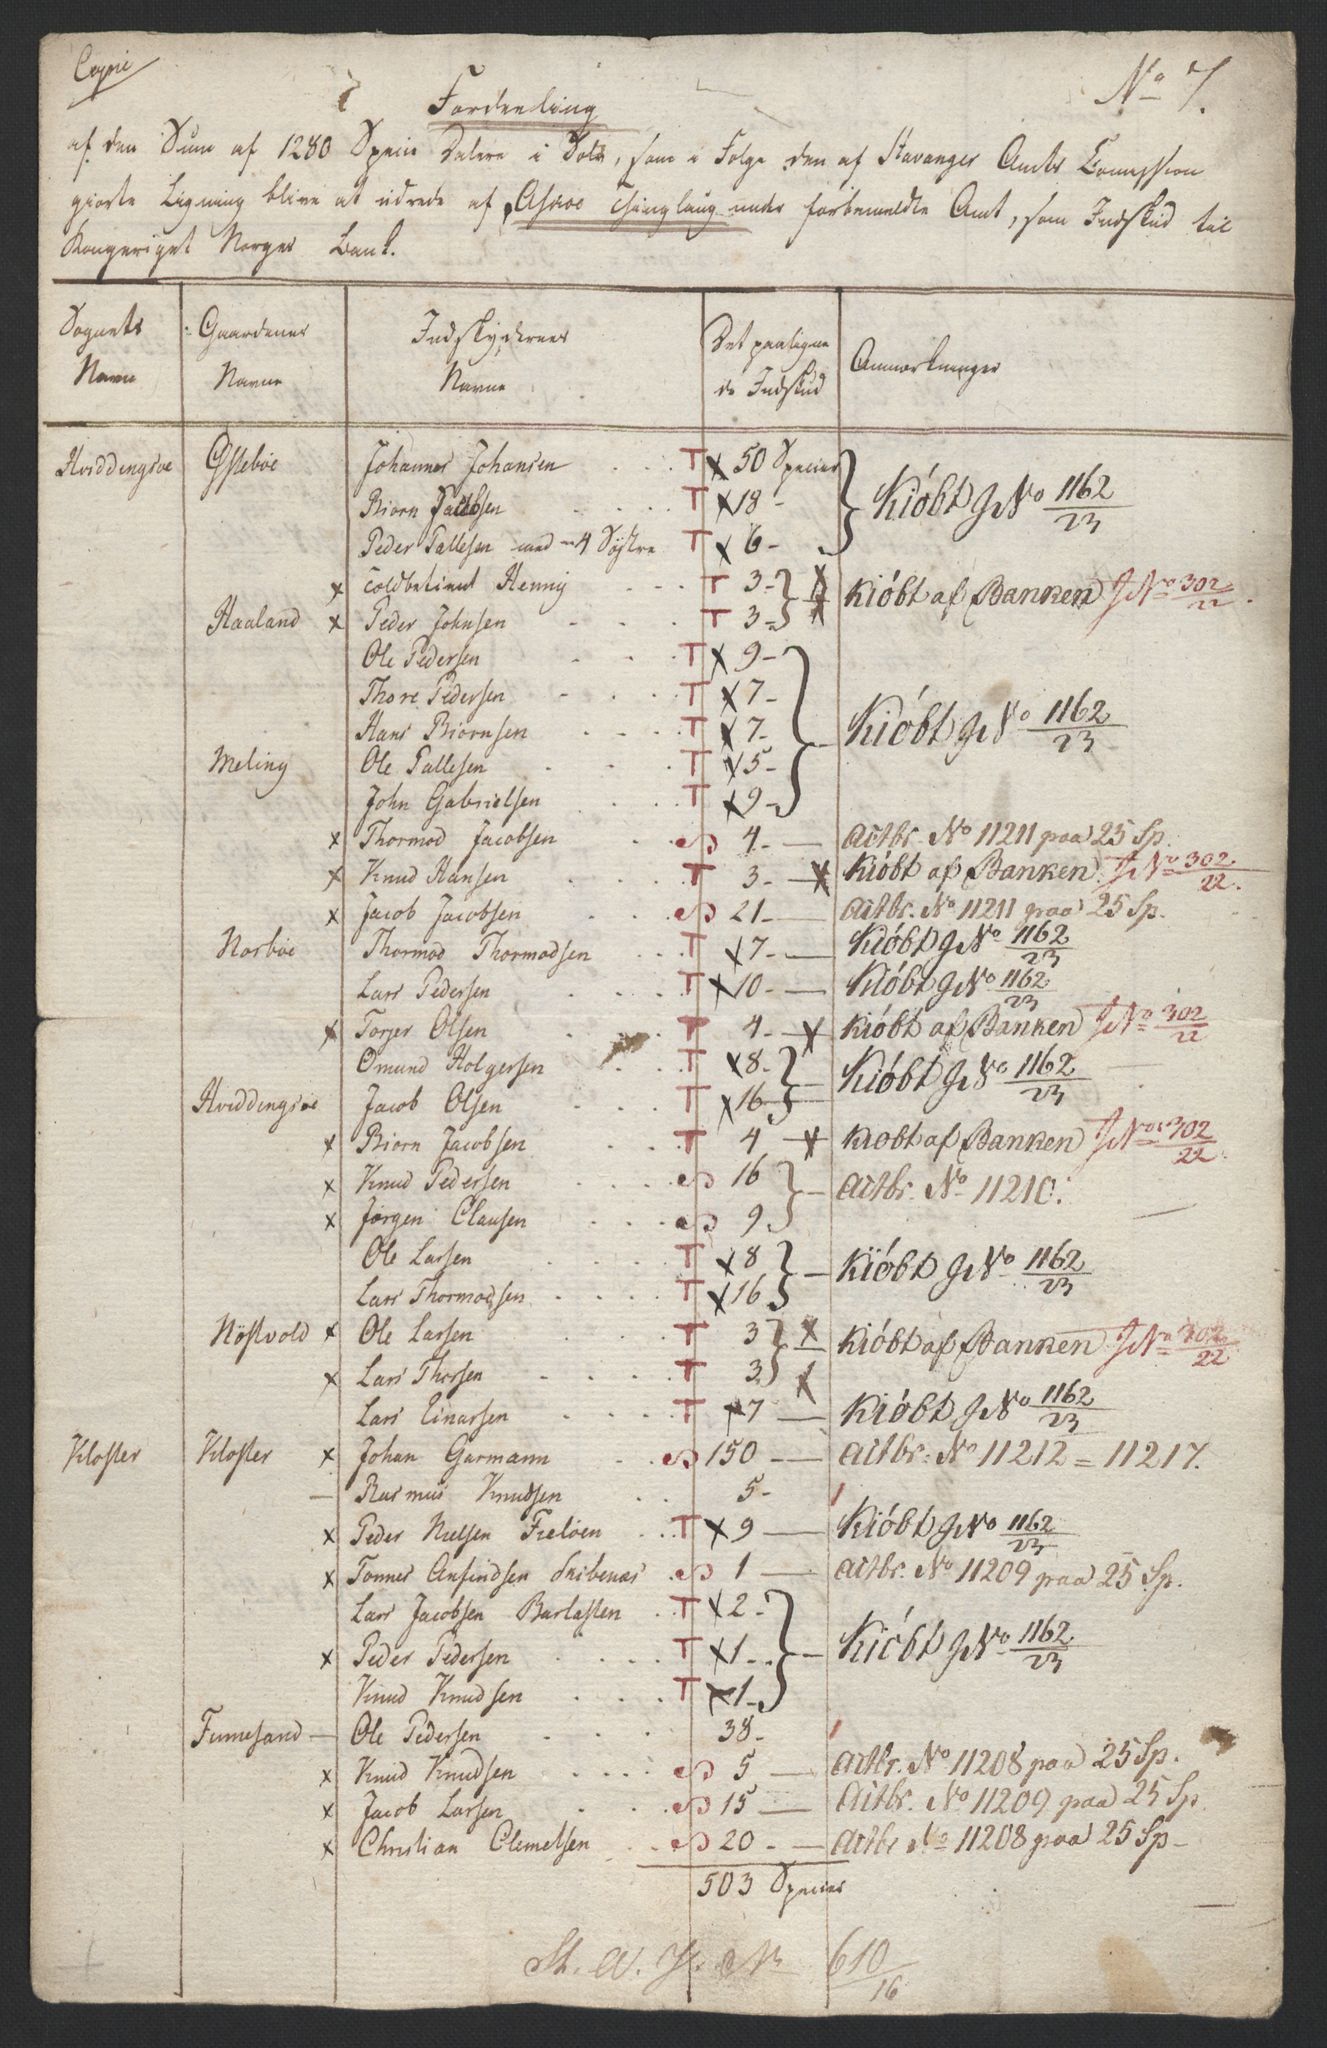 Copie
No 7.
Fordeeling
af den Sum af 1280 Specie Dalere i Sölv, som i Følge den af Stavanger Amts Commission
giorte Ligning bliver at udrede af Askøe Thinglaug under forbemeldte Amt, som Indskud til
Kongeriget Norges Bank.
Sognets Navn | Gaardenes Navne | Indskydernes Navne | Det paalignede Indskud | Anmærkninger
Hviddingsøe Gjsteböe Johannes Johansen T x 50 Specier
Biorn Jacobsen T x 18 - Kióbt J No 1162/23
Peder Tallesen med 4 Søstre T x 6 -
x Toldbetient Hennig T 3 - x
Kióbt af Banken J No 302/22
Haaland x Peder Johnsen T 3 - x
Ole Pedersen T x 9 -
Thore Pedersen T x 7 -
Hans Biörnsen T x 7 - Kióbt J No 1162/23
Meling Ole Tallesen T x 5 -
John Gabrielsen T x 9 -
x Thormod Jacobsen S 4 - Actbr. No 11211 paa 25 Sp.
x Knud Hansen T 3 - x Kióbt af Banken J No 302/22.
x Jacob Jacobsen S 21 - Actbr. No 11211 paa 25 Sp.
Norböe Thormod Thormodsen T x 7 - Kióbt J No 1162/23
Lars Pedersen T x 10 - Kióbt J No 1162/23
x Torger Olsen T 4 - x Kióbt af Banken J No 302/22
Omund Holgersen T x 8 - Kióbt J No 1162/23
Hviddingsøe Jacob Olsen T x 16 -
x Biorn Jacobsen T 4 - x Kiobt af Banken J No 302/22
x Knud Pedersen S 16 Actbr. No 11210.
x Jørgen Clausen S 9
Ole Larsen T x 8 Kióbt J No 1162/23
Lars Thormodsen T x 16
Nöstvold x Ole Larsen T 3 x Kióbt af Banken J No 302/22
x Lars Thorsen T 3 x
Lars Einarsen T x 7 - Kióbt J No 1162/23
Kloster Kloster x Johan Garmann S 150 - Actbr. No 11212 = 11217.
- Rasmus Knudsen 5 -
x Peder Nielsen Fieløen T x 9 - Kióbt J No 1162/23
x Tonnes Anfindsen Skibenæs S 1 - Actbr. No 11209 paa 25 Sp.
Lars Jacobsen Barlasten T x 2 -
x Peder Pedersen T x 1 - Kióbt J No 1162/23
Knud Knudsen T x 1 -
Fumesand - Ole Pedersen 38 -
x Knud Knudsen S 5 - Actbr. No 11208 paa 25 Sp.
x Jacob Larsen S 15 - Actbr. No 11209 paa 25 Sp
x Christian Clemetsen S 20 - Actbr No 11208 paa 25 Sp -
503 Specier
St. A. J. No 610/16